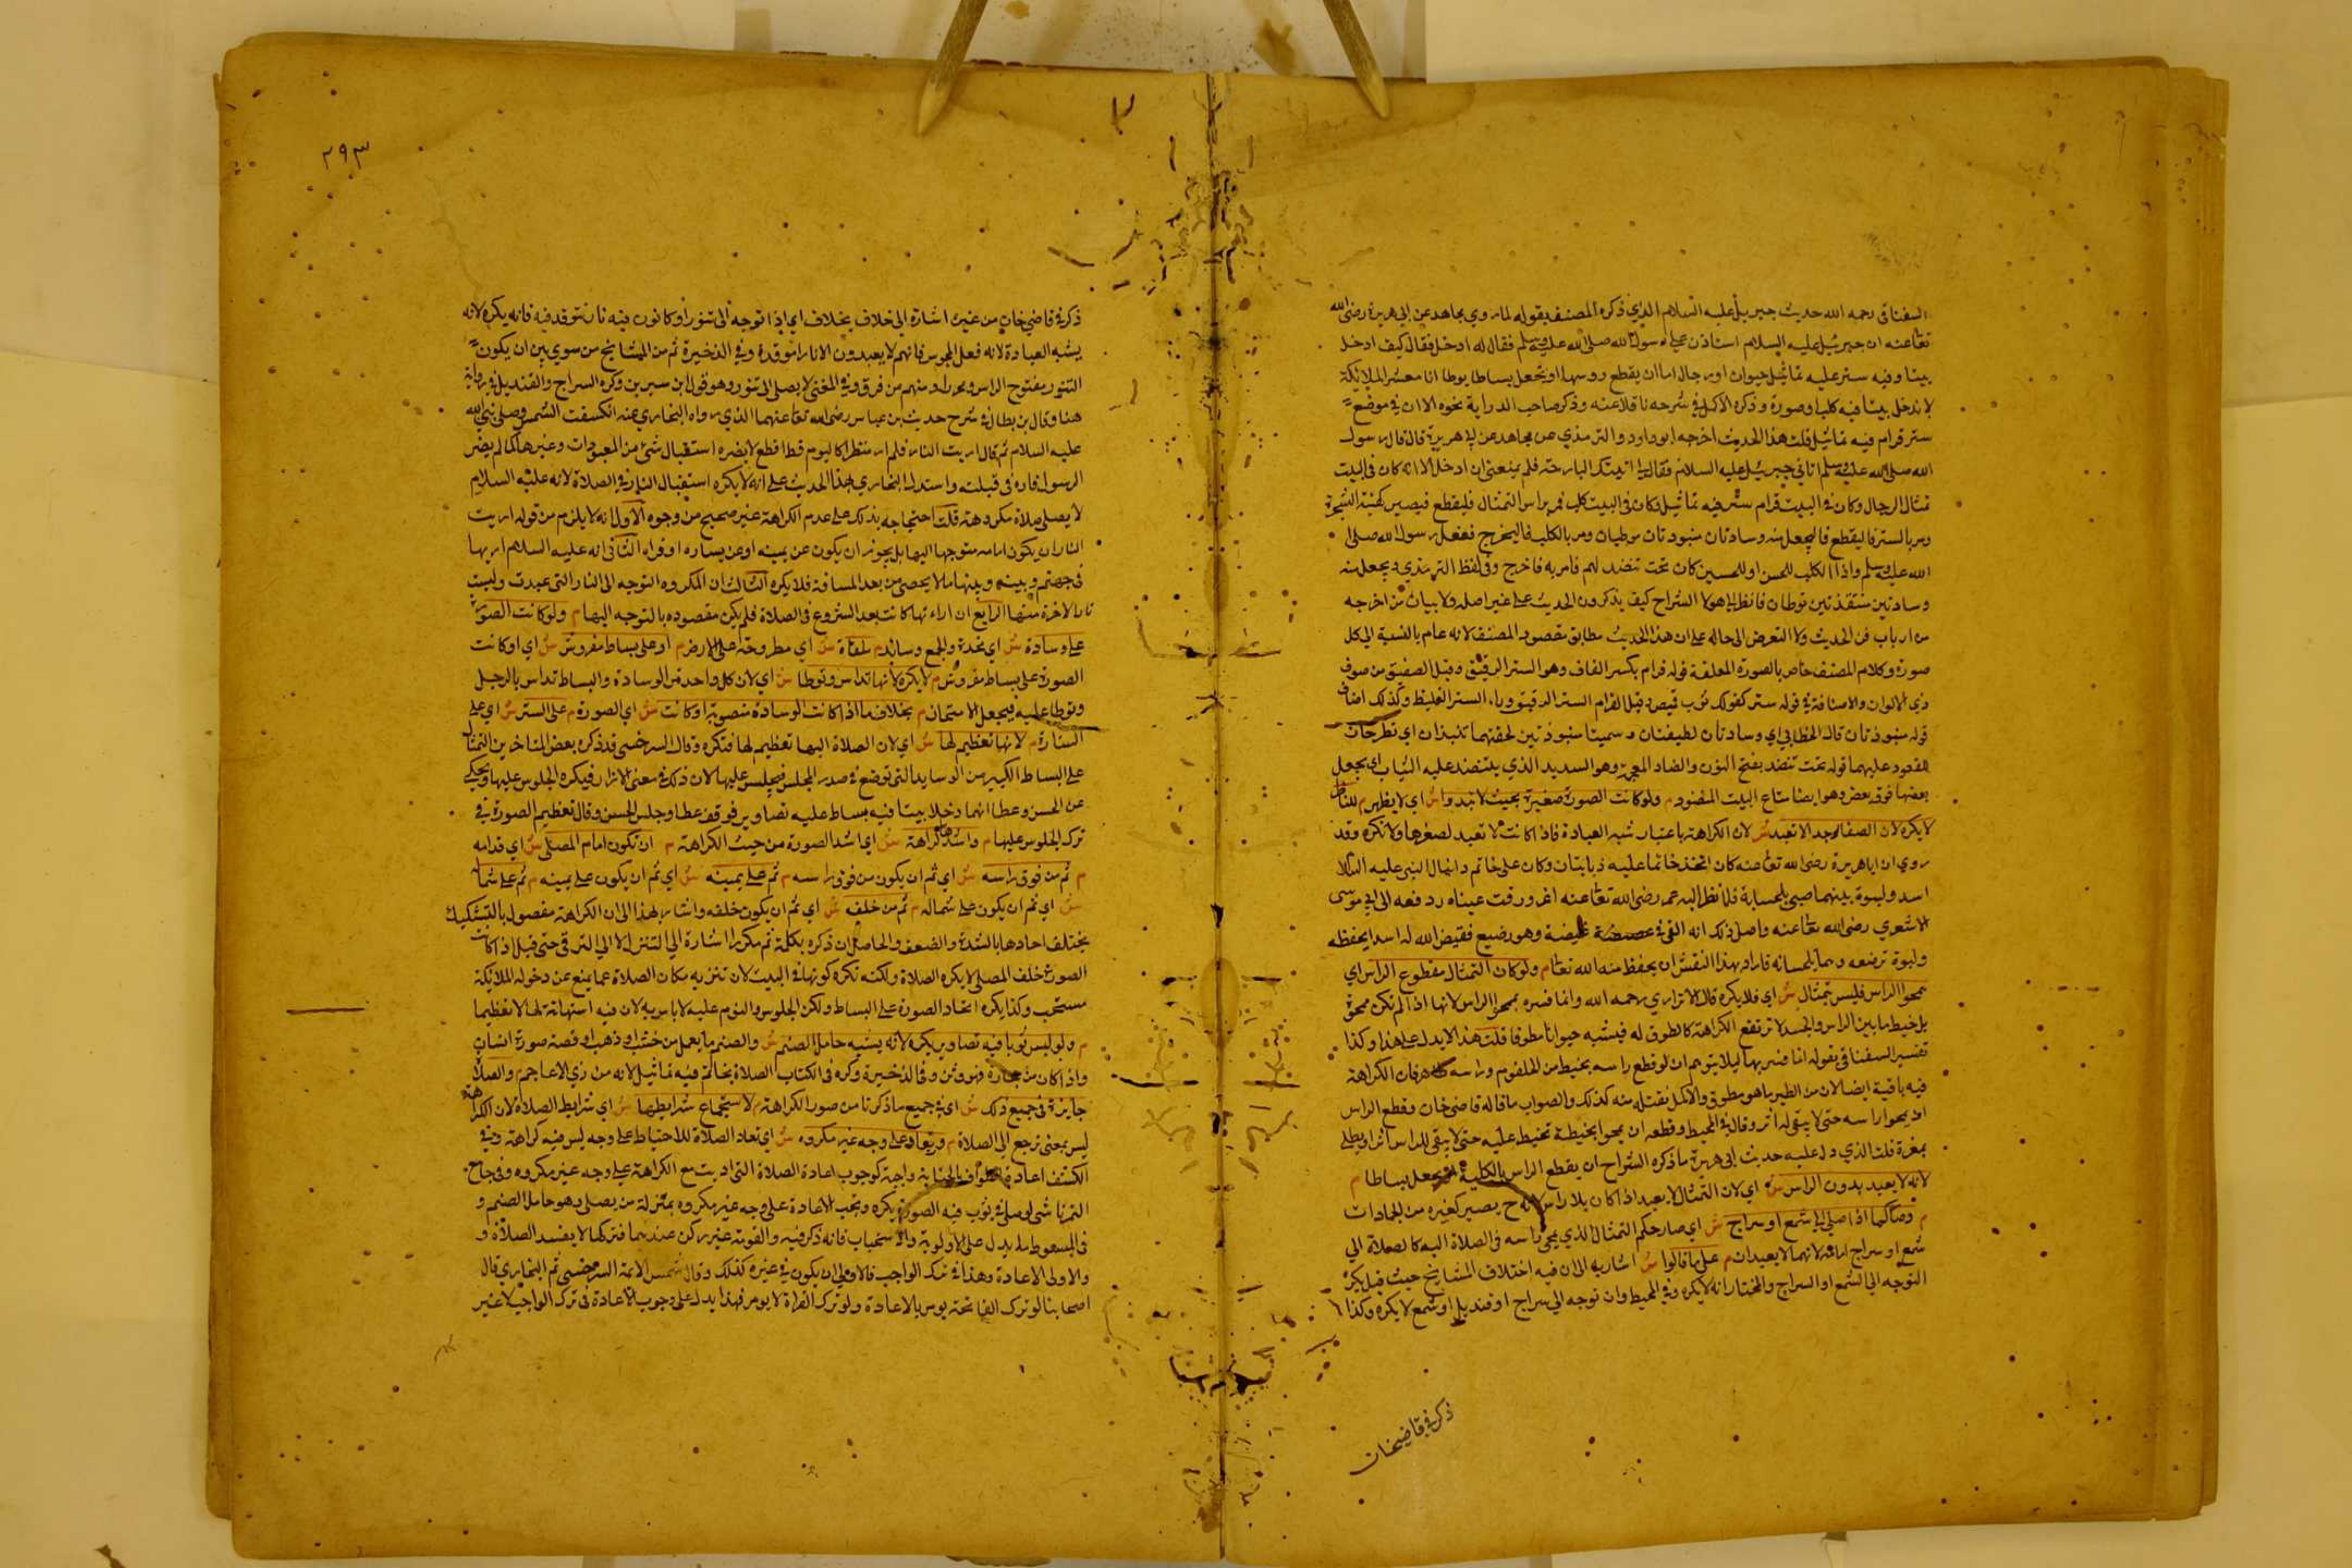 السغناقي رحمه الله حديث جبريل عليه السلام الذي ذكره المصنف بقوله لما روي مجاهد عن ابي هريرة رضي الله
تعا عنه ان جبرئيل عليه السلام استاذن على رسول الله صلى الله عليه وسلم فقال له ادخل فقال كيف ادخل
بيتا وفيه ستر عليه تماثيل حيوان او رجال اما ان يقطع روسها او تجعل بساطا يوطا انا معشر الملائكة
لا ندخل بيتا فيه كلب او صورة وذكره الاكمل في شرحه ناقلا عنه وذكر صاحب الدراية نحوه الا ان في موضع
ستر قرام فيه تماثيل قلت هذا الحديث اخرجه ابو داود والترمذي عن مجاهد عن ابي هريرة قال قال رسول
الله صلى الله عليه وسلم اتاني جبرئيل عليه السلام فقال لي اتيتك البارحة فلم يمنعني ان ادخل الا انه كان في البيت
تمثال الرجال وكان في البيت قرام ستر فيه تماثيل وكان في البيت كلب فمر براس التمثال فليقطع فيصير كهيئة الشجرة
ومر بالستر فاليقطع فاليجعل منه وسادتان منبوذتان موطيان ومر بالكلب فاليخرج ففعل رسول الله صلى
الله عليه وسلم واذا الكلب للحسن او للحسين كان تحت نضد لهم فامر به فاخرج وفي لفظ الترمذي ويجعل منه
وسادتين منتقذتين توطان فانظر الى هولا الشراح كيف يذكرون الحديث على غير اصله ولا بيان من اخرجه
من ارباب فن الحديث ولا التعرض الى حاله على ان هذا الحديث مطابق مقصود المصنف لانه عام بالنسبة الى كل
صورة وكلام المصنف خاص بالصورة المعلقة قوله قرام بكسر القاف وهو الستر الرقيق وقيل الصفيق من صوف
ذي الالوان والاضافة في قوله ستر كقولك ثوب قميص وقيل القرام الستر الرقيق وراء الستر الغليظ وكذلك اضاف
قوله منبوذتان قال الخطابي اي وسادتان لطيفتان وسميتا منبوذتين لخفتهما تنبذان اي تطرحان
للقعود عليهما قوله تحت نضد بفتح النون والضاد المعجمة وهو السديد الذي ينتضد عليه الثياب اي يجعل
بعضها فوق بعض وهو ايضا متاع البيت المنضود م ولو كانت الصورة صغيرة بحيث لا تبدوا ش اي لا يظهر م للناظر
لا يكره لان الصغار جدا لا تعبد ش لان الكراهة باعتبار شبه العبادة فاذا كانت لا تعبد لصغرها ولا تكره وقد
روي ان ابا هريرة رضي الله تعا عنه كان اتخذ خاتما عليه ذبابتان وكان على خاتم دانيال النبي عليه السلام
اسد ولبوة بينهما صبي يلحسانه فلما نظر اليه عمر رضي الله تعا عنه اغرورقت عيناه ودفعه الى ابي موسى
الاشعري رضي الله تعا عنه واصل ذلك انه القي في غيضة وهو رضيع فقيض الله له اسدا يحفظه
ولبوة ترضعه وهما يلحسانه فاراد بهذا النقش ان يحفظ منه الله تعا م ولو كان التمثال مقطوع الراس اي
ممحوا الراس فليس بتمثال ش اي فلا يكره قال الاترازي رحمه الله وانما فسره بمحو الراس لانها اذا لم تكن ممحوة
بل خيط ما بين الراس والجسد لا ترتفع الكراهة كالطوق له فيشبه حيوانا مطوقا قلت هذا لا يدل على هذا وكذا
تفسير السغناقي بقوله انما فسر بها ليلا يتوهم ان لو قطع راسه بخيط من الحلقوم وراسه فان الكراهة
فيه باقية ايضا لان من الطير ما هو مطوق والاكمل نقله منه كذلك والصواب ما قاله قاضي خان وقطع الراس
ان يمحوا راسه حتى لا يبقى له اثر وقال في المحيط وقطعه ان يمحوا بخيطة تخيط عليه حتى لا يبقى للراس اثر او يطلي
بمغرة قلت الذي دل عليه حديث ابي هريرة ما ذكره الشراح ان يقطع الراس بالكلية يجعل بساطا م
لانه لا يعبد بدون الراس ش اي لان التمثال لا يعبد اذا كان بلا راس لانه ح يصير كغيره من الجمادات
م وصار كما اذا صلى الى شمع او سراج ش اي صار حكم التمثال الذي محي راسه في الصلاة اليه كالصلاة الى
شمع او سراج امامه لانهما لا يعبدان م على ما قالوا ش اشار به الى ان فيه اختلاف المشايخ حيث قيل يكره
التوجه الى الشمع او السراج والمختار انه لا يكره وفي المحيط وان توجه الى سراج او قنديل او شمع لا يكره وكذا
ذكر في قاضيخان
٢٩٣
ذكر في قاضي خان من غير اشارة الى خلاف بخلاف اي اذا توجه الى تنور او كانون فيه نار تتوقد فيه فانه يكره لانه
يشبه العبادة لانه فعل المجوس فانهم لا يعبدون الا نارا موقدة وفي الذخيرة ثم من المشايخ من سوي بين ان يكون
التنور مفتوح الراس ومنهم من فرق وفي المغني لا يصلى الى تنور وهو قول ابن سيرين وكره السراج والقنديل في رواية
هنا وقال بن بطال في شرح حديث بن عباس رضي الله تعا عنهما الذي رواه البخاري عنه انكسفت الشمس وصلى نبي الله
عليه السلام ثم قال اريت النار فلم ار منظرا كاليوم قط افظع لا يضره استقبال شئ من المعبودات وغيرها كما لم يضر
الرسول ما راه في قبلته واستدل البخاري بهذا الحديث على انه لا يكره استقبال النار في الصلاة لانه عليه السلام
لا يصلي صلاة مكروهة قلت احتجاجه بذلك على عدم الكراهة غير صحيح من وجوه الاول انه لا يلزم من قوله اريت
النار ان يكون امامه متوجها اليها بل يجوز ان يكون عن يمينه او عن يساره او قراه الثاني انه عليه السلام اريها
في جهنم وبينه وبينها ما لا يحصى من بعد المسافة فلا يكره الثالث ان المكروه التوجه الى النار التي عبدت وليست
نار الاخرة منها الرابع ان اراءتها كانت بعد الشروع في الصلاة فلم يكن مقصوده بالتوجه اليها م ولو كانت الصورة
على وسادة ش اي مخدة والجمع وسائد م ملقاة ش اي مطروحة على الارض م او على بساط مفروش ش اي او كانت
الصورة على بساط مفروش م لا يكره لانها تداس وتوطا ش اي لان كل واحد من الوسادة والبساط تداس بالرجل
وتوطا عليه فيجعل الامتهان م بخلاف ما اذا كانت الوسادة منصوبة او كانت ش اي الصورة م على الستر ش اي على
الستارة م لانها تعظيم لها ش اي لان الصلاة اليها تعظيم لها فتكره وقال السرخسي قد ذكره بعض المتاخرين التمثال
على البساط الكبير من الوسايد التي توضع في صدر المجلس فيجلس عليها لان ذلك في معنى الازار فيكره الجلوس عليها وحكي
عن الحسن وعطا انهما دخلا بيتا فيه بساط عليه تصاوير فوقف عطا وجلس الحسن وقال تعظيم الصورة في
ترك الجلوس عليها م واشدها كراهة ش اي اشد الصورة من حيث الكراهة م ان تكون امام المصلى ش اي قدامه
م ثم من فوق راسه ش اي ثم ان يكون من فوق راسه م ثم على يمينه ش اي ثم ان يكون على يمينه م ثم على شماله
ش اي ثم ان يكون على شماله م ثم من خلفه ش اي ثم ان يكون خلفه واشار بهذا الى ان الكراهة مفصول بالتشكيك
يختلف احادها بالشدة والضعف والحاصل ان ذكره بكلمة ثم مكررا اشارة الى التنزل لا الى الترقي حتى قيل اذا كانت
الصورة خلف المصلى لا يكره الصلاة ولكنه تكره كونها في البيت لان تنزيه مكان الصلاة عما يمنع عن دخول الملائكة
مستحب وكذا يكره اتخاد الصورة على البساط ولكن الجلوس والنوم عليه لا باس به لان فيه استهانة لها لا تعظيما
م ولو لبس ثوبا فيه تصاوير يكره لانه يشبه حامل الصنم ش والصنم ما يعمل من خشب او ذهب او فضة صورة انسان
واذا كان من حجارة فهو وثن وفي الذخيرة وكره في الكتاب الصلاة بخاتم فيه تماثيل لانه من زي الاعاجم والصلاة
جايزة في جميع ذلك ش اي في جميع ما ذكرنا من صور الكراهة م لاستجماع شرايطها ش اي شرايط الصلاة لان الكراهة
ليس بمعنى ترجع الى الصلاة م وتعاد على وجه غير مكروه ش اي تعاد الصلاة للاحتياط على وجه ليس فيه كراهة وفي
الكشف اعادة الطواف بالجنابة واجبة كوجوب اعادة الصلاة التي اديت مع الكراهة على وجه غير مكروه وفي جامع
التمرتاشي لو صلى في ثوب فيه الصورة يكره وتجب الاعادة على وجه غير مكروه بمنزلة من يصلي وهو حامل الصنم و
في المبسوط ما يدل على الاولوية والاستحباب فانه ذكر فيه والقومة غير ركن عندهما فتركها لا يفسد الصلاة و
والاولى الاعادة وهذا في ترك الواجب فالاولى ان يكون في غيره كذلك وقال شمس الائمة السرخسي ثم البخاري قال
اصحابنا لو ترك الفاتحة يومر بالاعادة ولو ترك القراة لا يومر فهذا يدل على وجوب الاعادة في ترك الواجب لا غير